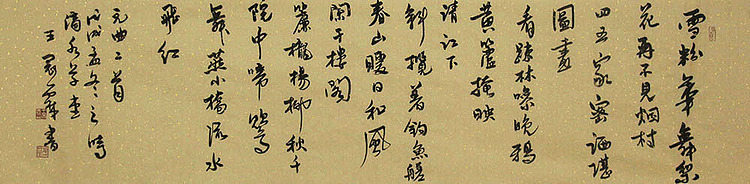 雪粉華舞梨
花再不見烟村
四五家密洒堪
圖畫
看疎林噪晚鴉
黃蘆掩映
清江下
斜攬著釣魚艖
春山暖日和風
闌干樓閣
簾櫳楊柳秋千
院中啼鶯
舞燕小橋流水
飛紅
元曲二首
孟冬之時
王 書